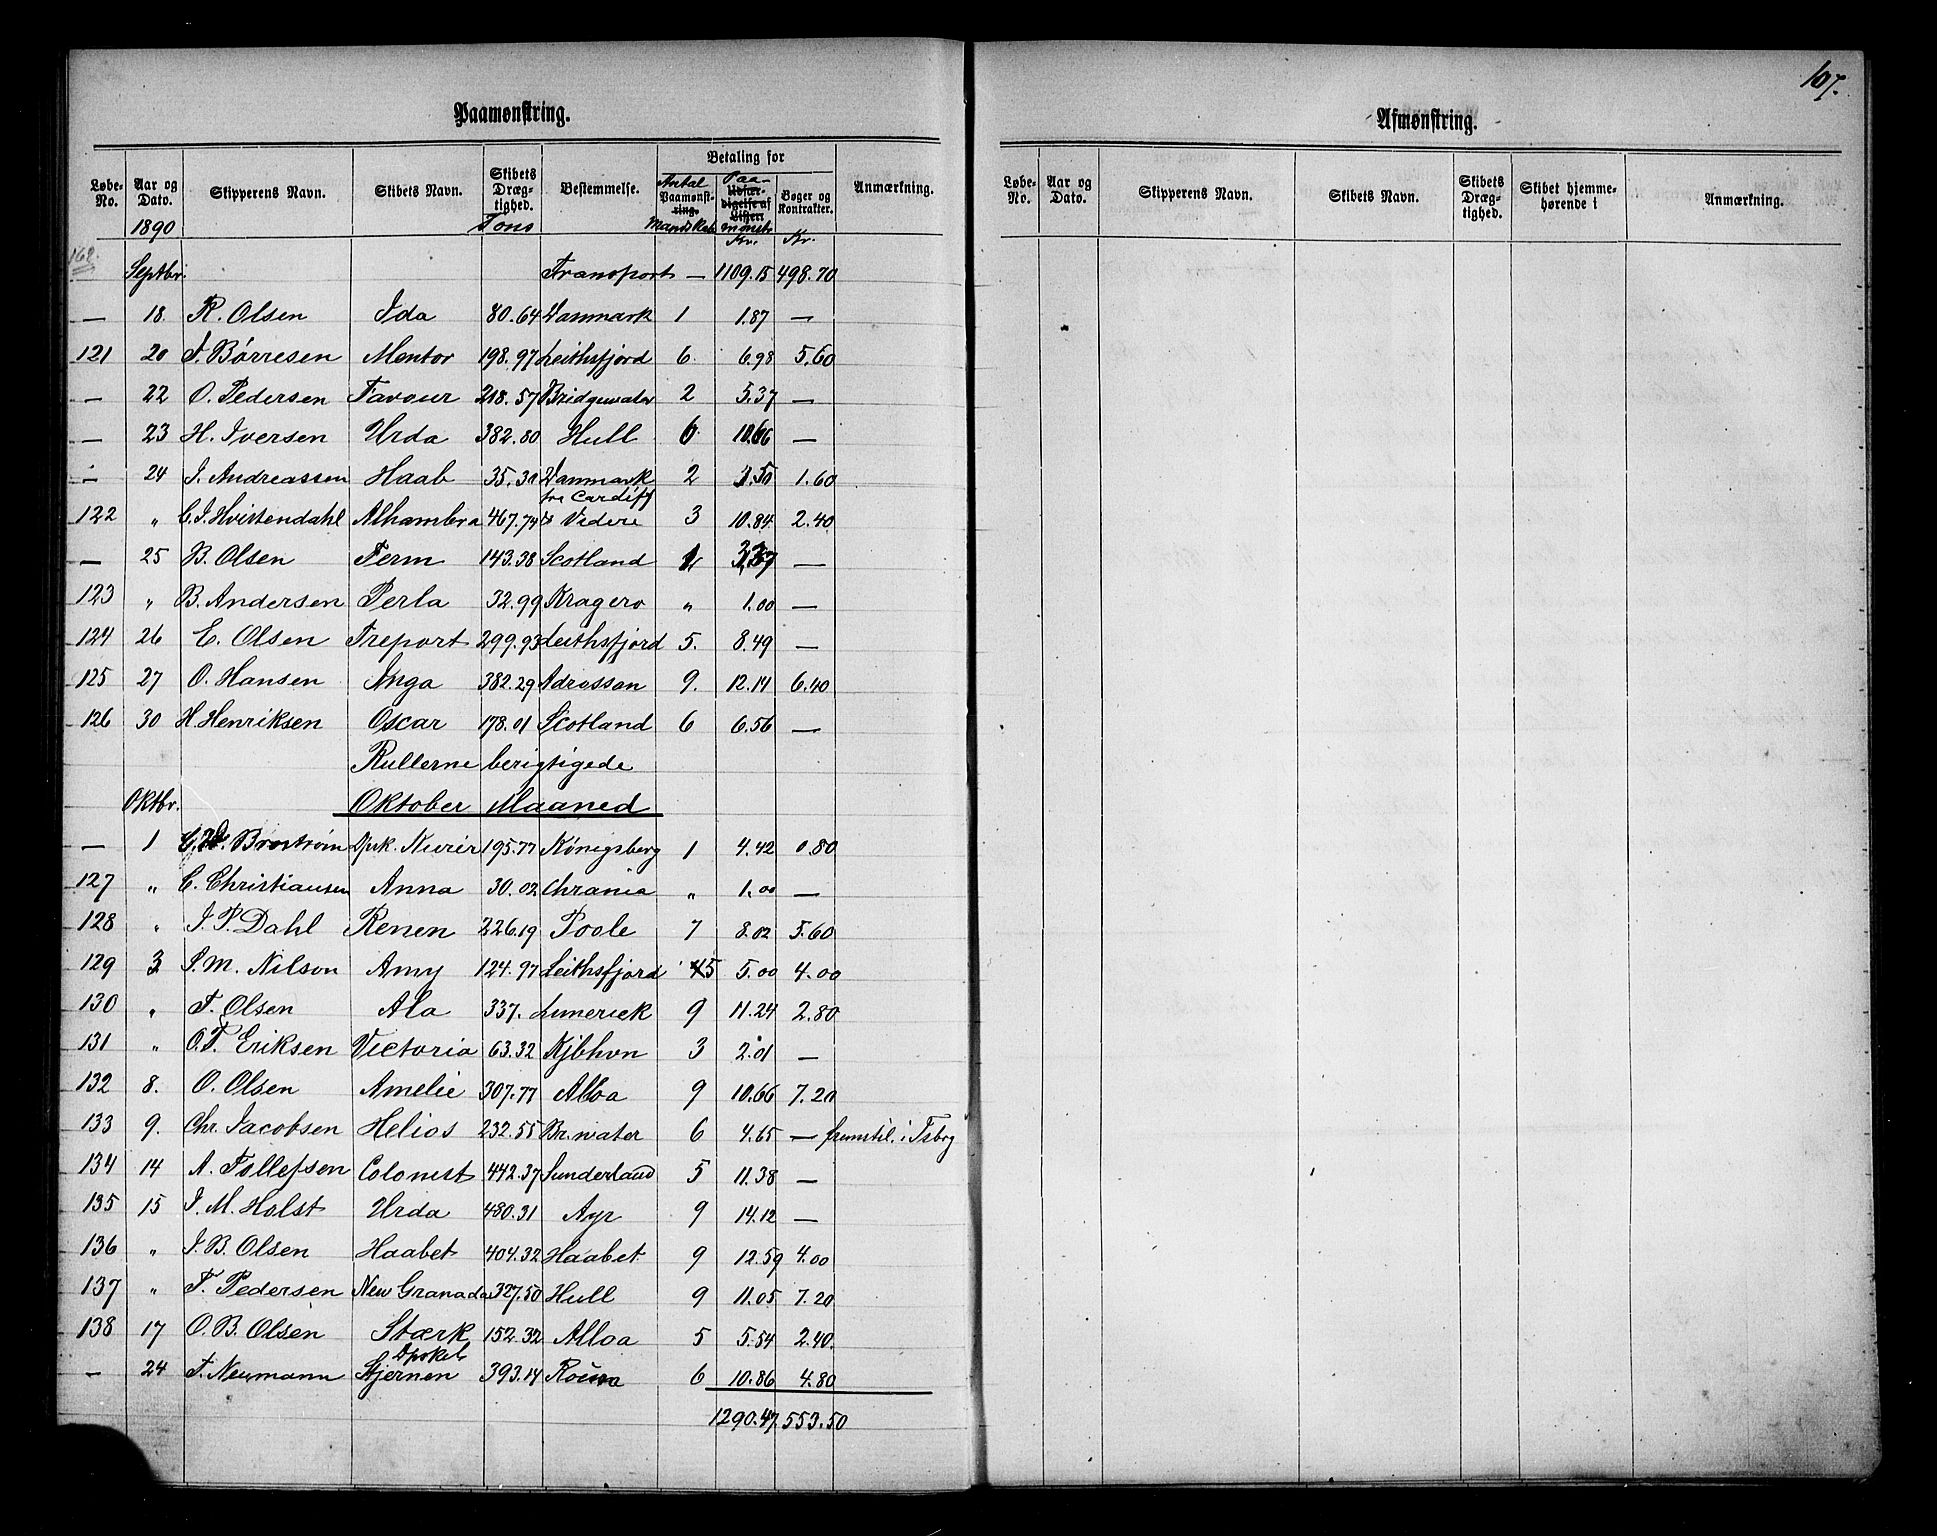 107.
Paamønstring.
Løbe-No. Aar og Dato. Skipperens Navn. Skibets Navn. Skibets Dræg-tighed. Bestemmelse. Betaling for Antal Paamønst-ring. Mandskab Paa- Udfær-digelse af Lister. mønstr. Bøger og Kontrakter. Anmærkning.
1890 Tons Kr. Kr.
162. Septbr. Transport — 1109.15 498.70
— 18. R. Olsen Ida 80.64 Danmark 1 1.87 —
121 20 T. Børresen Mentor 198.97 Leithsfjord 6. 6.98 5.60
— 22 O. Pedersen Favour 218.57 Bridgewater 2 5.37 —
— 23 H. Iversen Urda 382.80 Hull 6 10.66 —
— 24 J. Andreassen Haab 35.30 Danmark 2 3.50 1.60
122 " C. J. Hvistendahl Alhambra 467.74 fra Cardiff & Videre 3 10.84 2.40
— 25 B. Olsen Ferm 143.38 Scotland —
123 " B. Andersen Perla 32.99 Kragerø " 1.00 —
124 26 E. Olsen Treport 299.93 Leithsfjord 5. 8.49 —
125 27 O. Hansen Inga 382.29 Adrossan 9. 12.14 6.40
126 30 H. Henriksen Oscar 178.01 Scotland 6 6.56 —
Rullerne berigtigede
Oktbr. Oktober Maaned
— 1 Broström Dpsk. Kurir 195.77 Kønigsberg 1 4.42 0.80
127 " C. Christiansen Anna 30.02 Chrania " 1.00 —
128 " J. P. Dahl Renen 226.19 Poole 7 8.02 5.60
129 3 S. M. Nilson Amy 124.97 Leithsfjord 5 5.00 4.00
130 " T. Olsen Ala 337. Limerick 9 11.24 2.80
131 " O. T. Eriksen Victoria 63.32 Kjbhvn 3 2.01 —
132 8. O. Olsen Amelie 307.77 Alloa 9 10.66 7.20
133 9. Chr. Jacobsen Helios 232.55 Br.water 6 4.65 — fremstil. i Tsbrg
134 14 A. Tollefsen Colonist 442.37 Sunderland 5 11.38 —
135 15 J. M. Holst Urda 480.31 Ayr 9 14.12 —
136 " J. B. Olsen Haabet 404.32 Haabet 9 12.59 4.00
137 " T. Pedersen New Granada 327.50 Hull 9 11.05 7.20
138 17 O. B. Olsen Stærk 152.32 Alloa 5 5.54 2.40.
— 24 T. Neumann Stjernen 393.14 6 10.86 4.80
1290.47 553.50
Afmønstring.
Løbe-No. Aar og Dato. Skipperens Navn. Skibets Navn. Skibets Dræg-tighed. Skibet hjemme-hørende i Anmærkning.